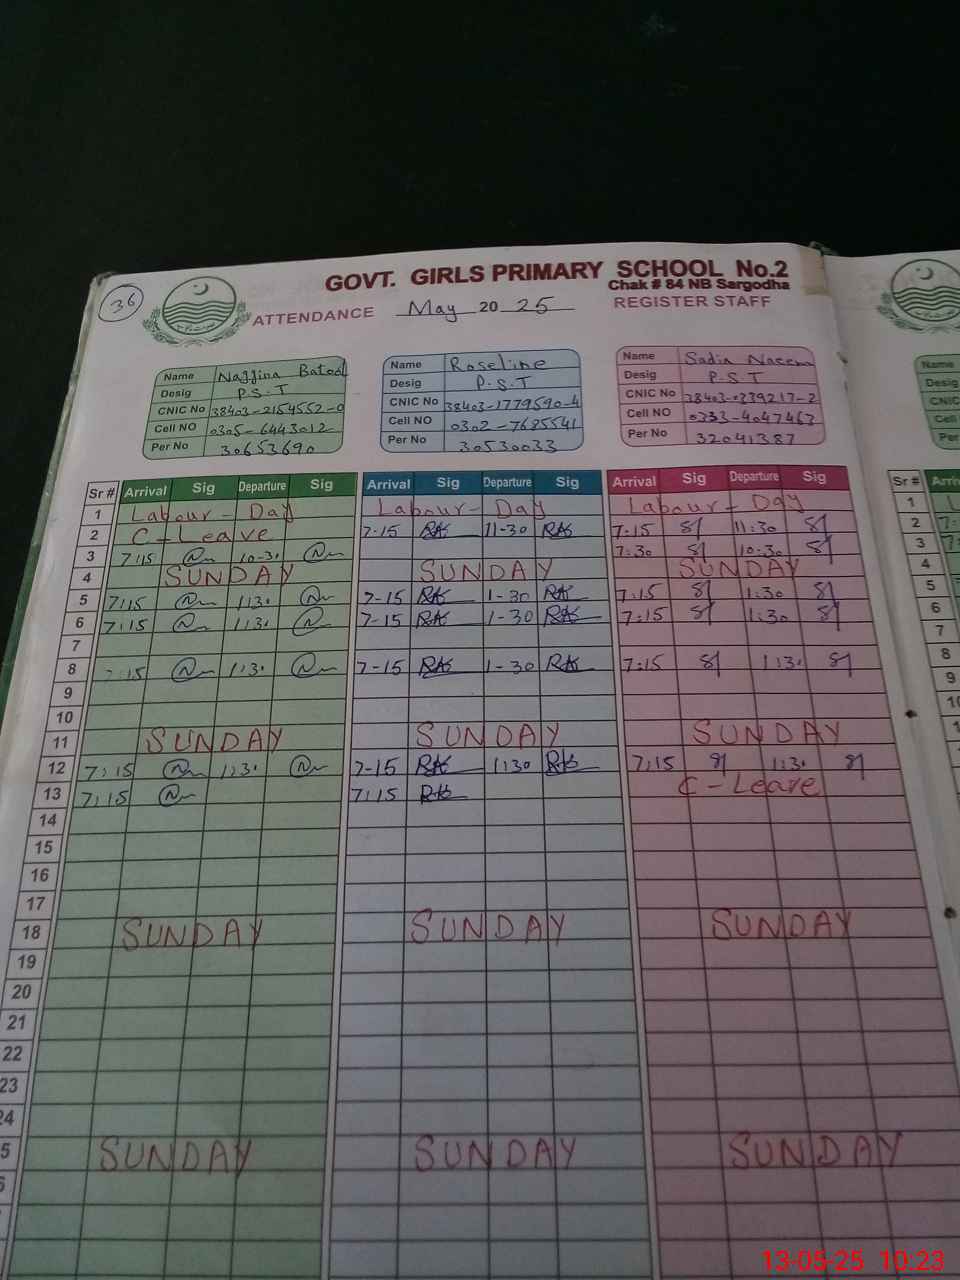 36
GOVT. GIRLS PRIMARY SCHOOL No.2
Chak # 84 NB Sargodha
ATTENDANCE May 2025 REGISTER STAFF
Name Najjina Batool
Desig P.S.T
CNIC No 38403-2154552-0
Cell NO 0305-6443012
Per No 30653690
Name Roseline
Desig P.S.T
CNIC No 38403-1779590-4
Cell NO 0302-7685541
Per No 30530033
Name Sadia Naeem
Desig P.S.T
CNIC No 38403-0339217-2
Cell NO 0333-4047463
Per No 32041387
Name
Desig
CNIC
Cell
Per N
Sr # Arrival Sig Departure Sig Arrival Sig Departure Sig Arrival Sig Departure Sig Sr # Arri
1 Labour - Day Labour - Day Labour - Day 1
2 C - Leave 7-15 11-30 7:15 11:30 2
3 7:15 10-30 7:30 10:30 3
4 SUNDAY SUNDAY SUNDAY 4
5 7:15 1:30 7-15 1-30 7:15 1:30 5
6 7:15 1:30 7-15 1-30 7:15 1:30 6
7 7
8 7:15 1:30 7-15 1-30 7:15 1:30 8
9 9
10
11 SUNDAY SUNDAY SUNDAY
12 7:15 1:30 7-15 1:30 7:15 1:30
13 7:15 7:15 C - Leave
14
15
16
17
18 SUNDAY SUNDAY SUNDAY
19
20
21
22
23
24
5 SUNDAY SUNDAY SUNDAY
13-05-25 10:23